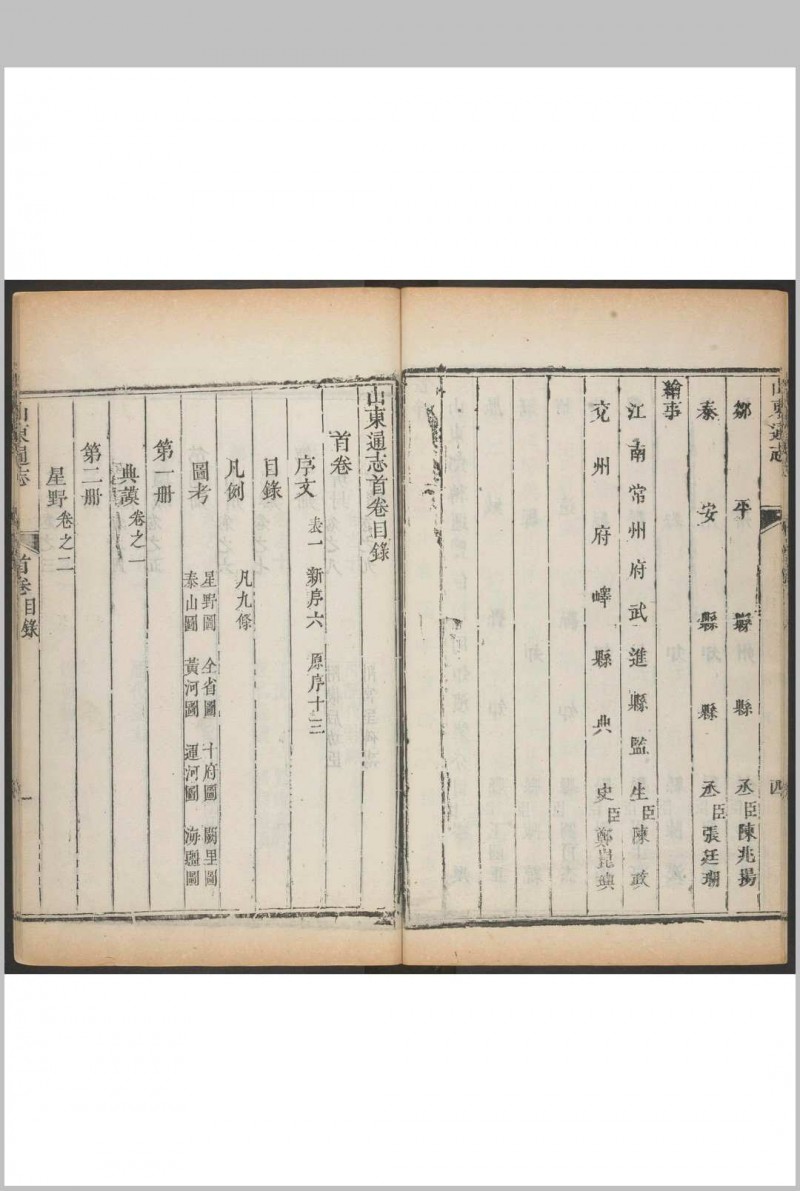 山東通志
四
鄒平縣縣丞臣陳兆揚
泰安縣縣丞臣張廷瑚
繪事
江南常州府武進縣監生臣陳政
兗州府嶧縣典史臣鄭崑璵
山東通志首卷目錄
首卷
序文 表一 新序六 原序十三
目錄
凡例 凡九條
圖考 星野圖 全省圖 十府圖 闕里圖
泰山圖 黃河圖 運河圖 海疆圖
第一册
典謨卷之一
第二册
星野卷之二
山東通志
首卷目錄
一